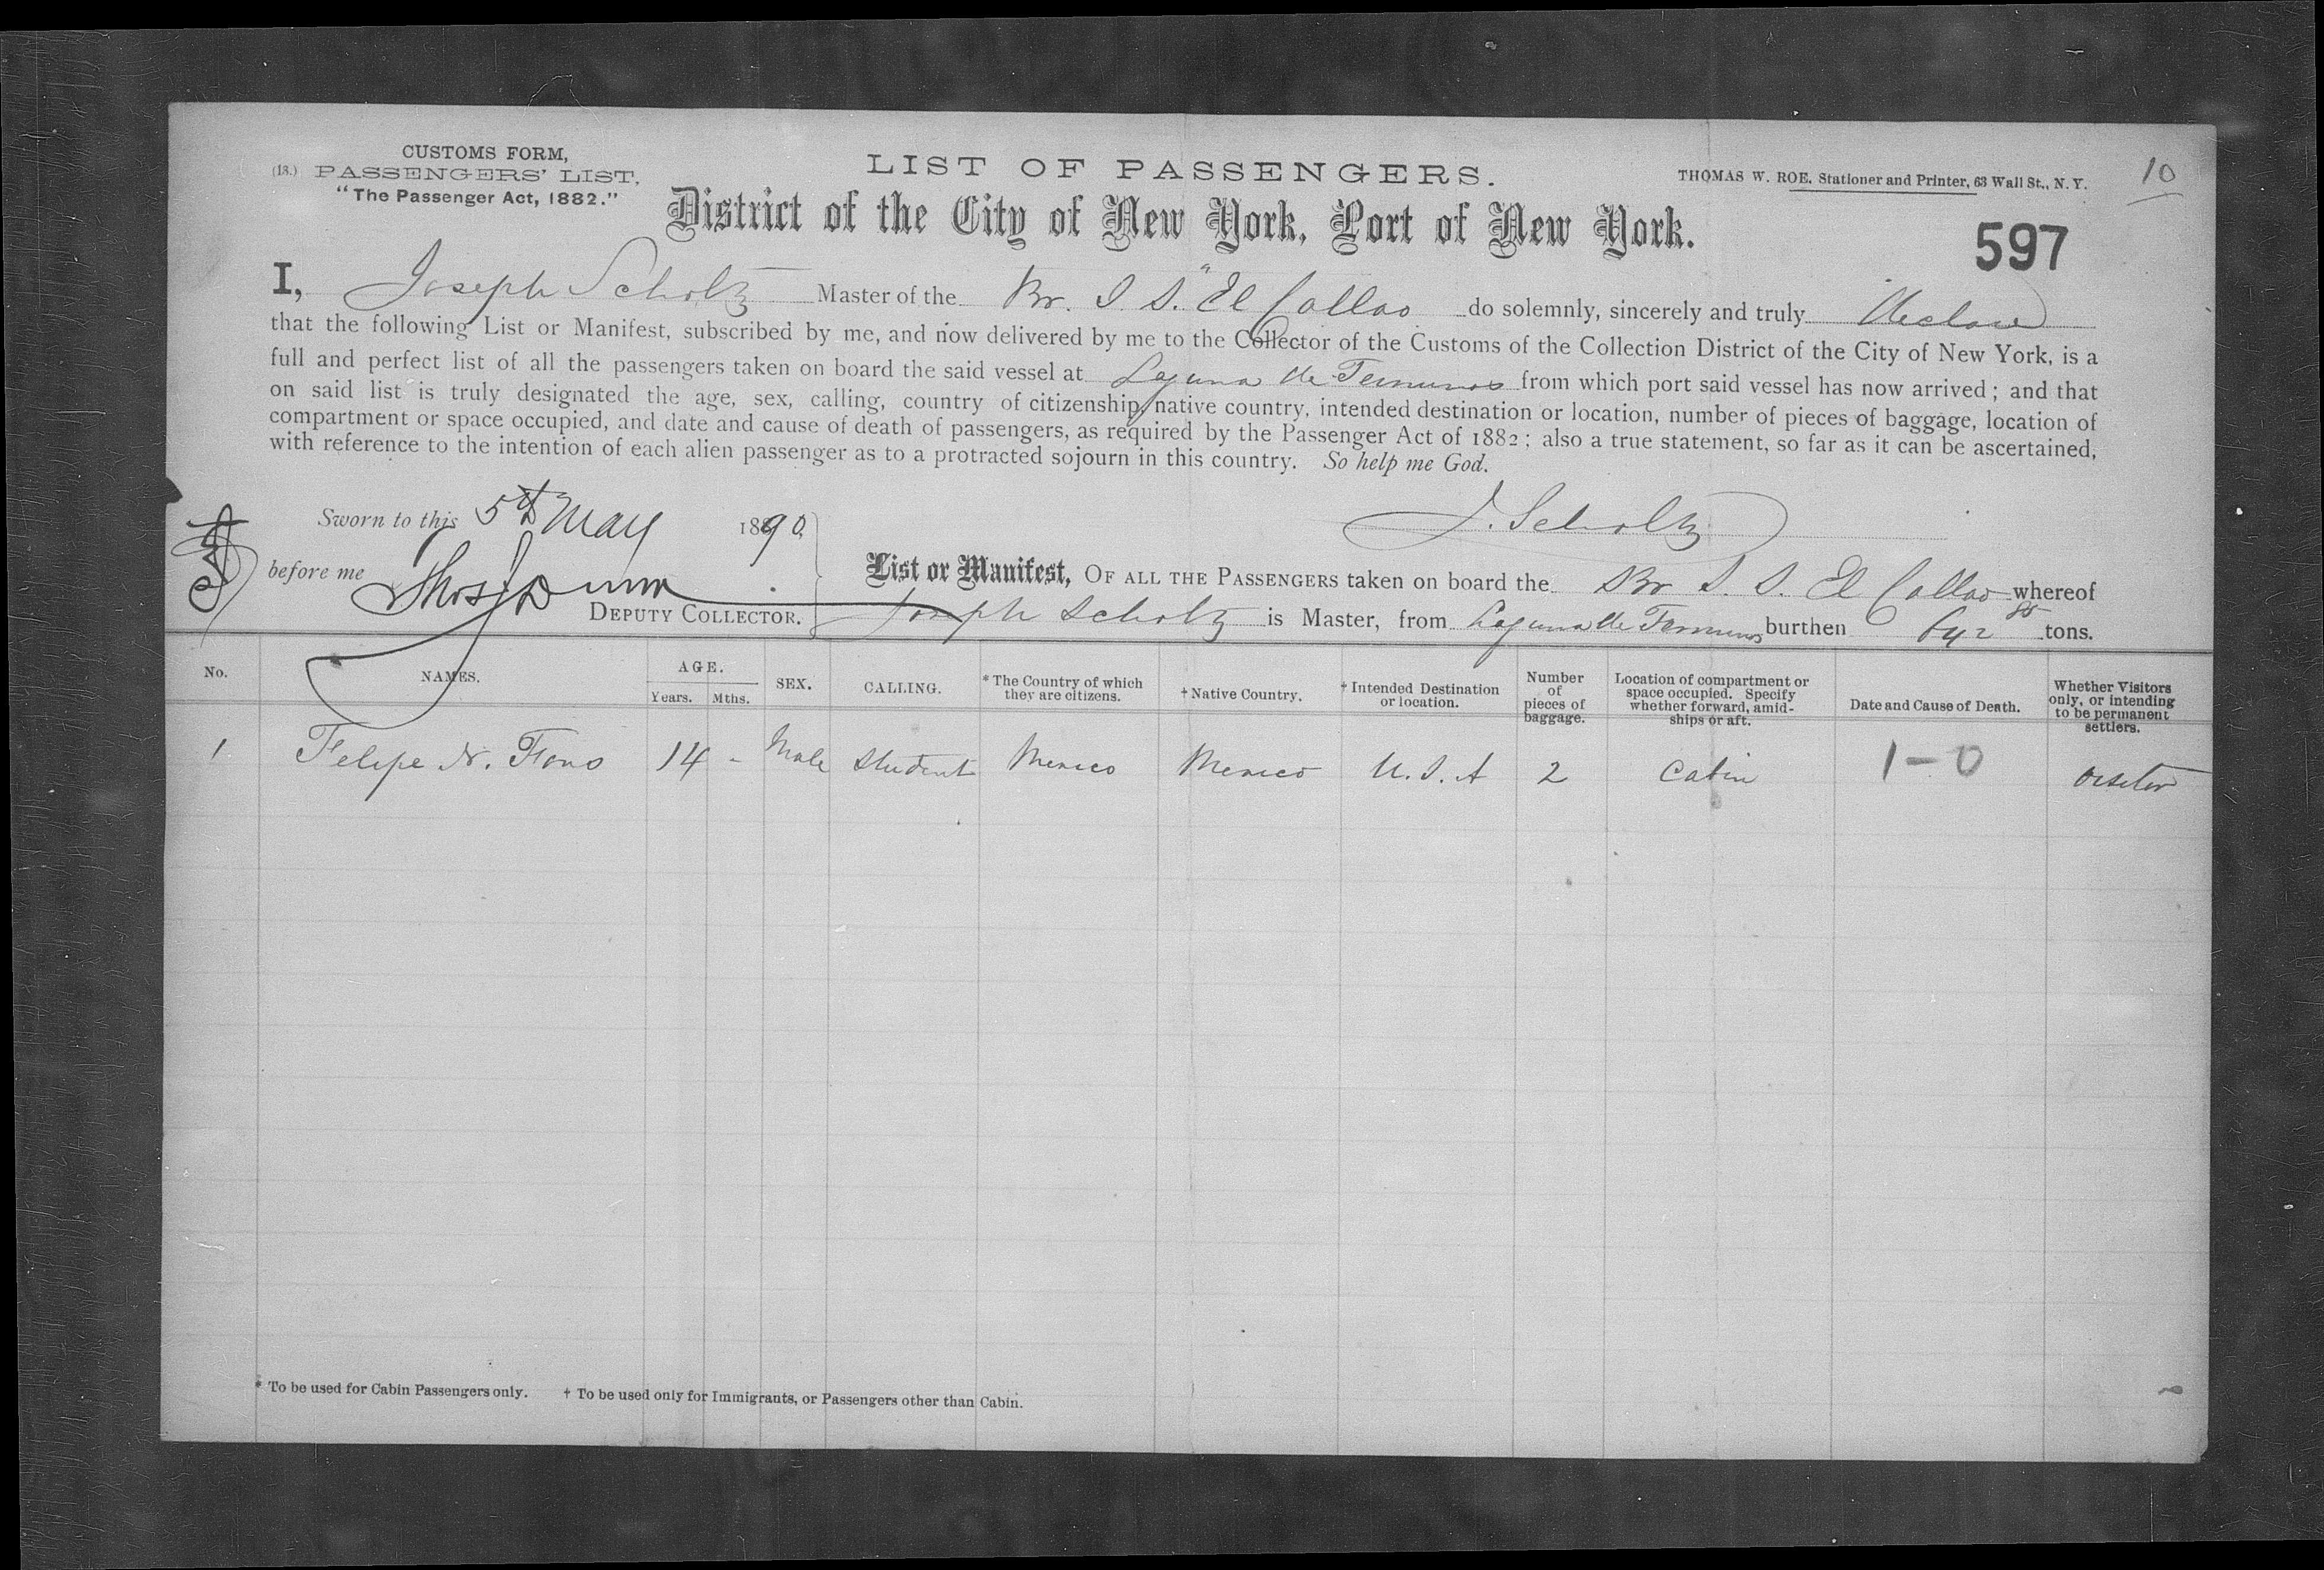 CUSTOMS FORM,
(18.) PASSENGERS' LIST,
"The Passenger Act, 1882."
LIST OF PASSENGERS.
THOMAS W. ROE, Stationer and Printer, 63 Wall St., N. Y.
10
District of the City of New York, Port of New York.
597
I, Joseph Scholtz Master of the Br. S. S. "El Callao do solemnly, sincerely and truly declare
that the following List or Manifest, subscribed by me, and now delivered by me to the Collector of the Customs of the Collection District of the City of New York, is a
full and perfect list of all the passengers taken on board the said vessel at Laguna de Terminos from which port said vessel has now arrived; and that
on said list is truly designated the age, sex, calling, country of citizenship, native country, intended destination or location, number of pieces of baggage, location of
compartment or space occupied, and date and cause of death of passengers, as required by the Passenger Act of 1882; also a true statement, so far as it can be ascertained,
with reference to the intention of each alien passenger as to a protracted sojourn in this country. So help me God.
Sworn to this 5th May 1890
J. Scholtz
before me Thos Dunn
DEPUTY COLLECTOR.
List or Manifest, OF ALL THE PASSENGERS taken on board the Br S. S. El Callao whereof
Joseph Scholtz is Master, from Laguna de Terminos burthen 642 tons.
No. NAMES. AGE. Years. Mths. SEX. CALLING. * The Country of which they are citizens. † Native Country. † Intended Destination or location. Number of pieces of baggage. Location of compartment or space occupied. Specify whether forward, amidships or aft. Date and Cause of Death. Whether Visitors only, or intending to be permanent settlers.
1 Felipe N. Fono 14 - Male Student Mexico Mexico U. S. A 2 Cabin 1-0 visitor
* To be used for Cabin Passengers only. † To be used only for Immigrants, or Passengers other than Cabin.